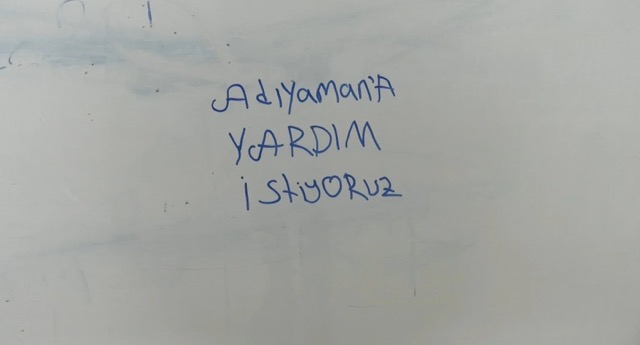 Adıyaman'A
YARDIM
istiyORUZ